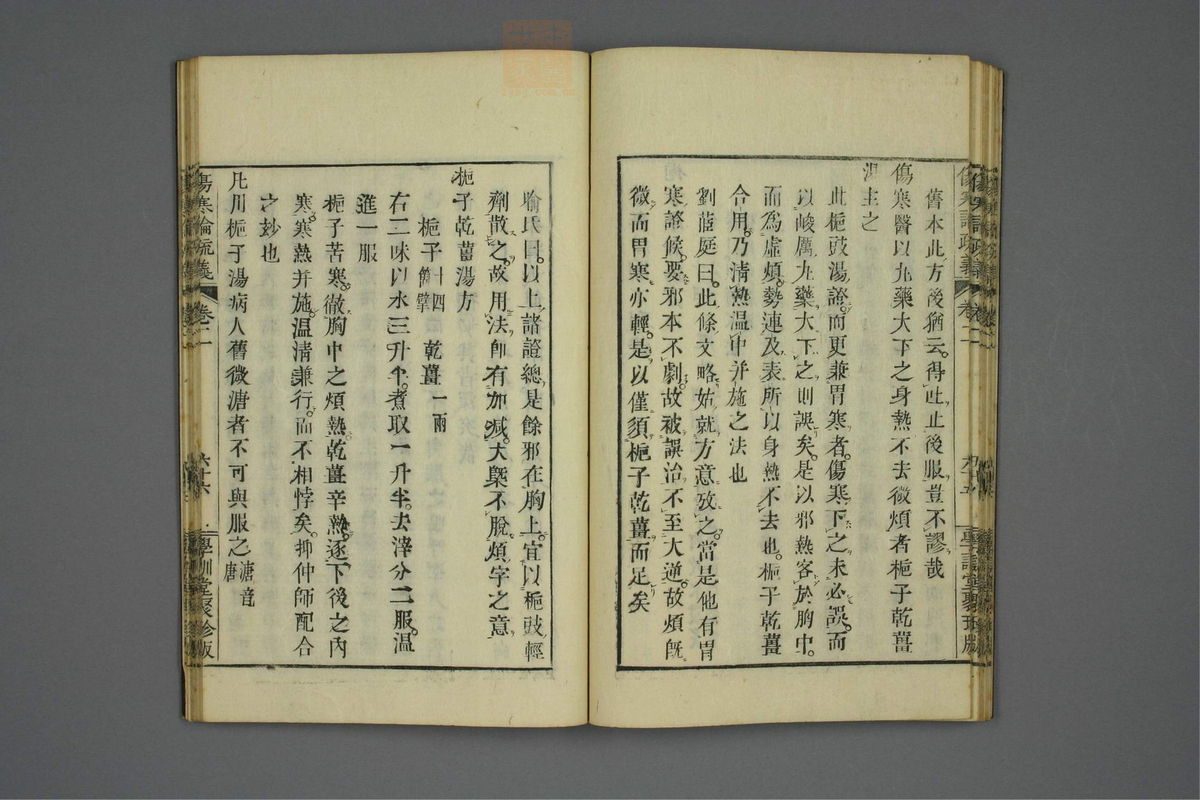 舊本此方後猶云得吐止後服豈不謬哉
傷寒醫以丸藥大下之身熱不去微煩者梔子乾薑
湯主之
此梔豉湯證而更兼胃寒者傷寒下之未必誤而
以峻厲丸藥大下之則誤矣是以邪熱客於胸中
而爲虛煩勢連及表所以身熱不去也梔子乾薑
合用乃清熱溫中并施之法也
劉茝庭曰此條文略姑就方意攷之當是他有胃
寒證候要邪本不劇故被誤治不至大逆故煩既
微而胃寒亦輕是以僅須梔子乾薑而足矣
喻氏曰以上諸證總是餘邪在胸上宜以梔豉輕
劑散之故用法卽有加減大槩不脫煩字之意
梔子乾薑湯方
梔子十四箇擘 乾薑一兩
右二味以水三升半煮取一升半去滓分二服溫
進一服
梔子苦寒徹胸中之煩熱乾薑辛熱逐下後之內
寒寒熱并施溫清兼行而不相悖矣抑仲師配合
之玅也
凡用梔子湯病人舊微溏者不可與服之溏音唐
傷寒論疏義 卷二 六十六 學訓堂聚珍版